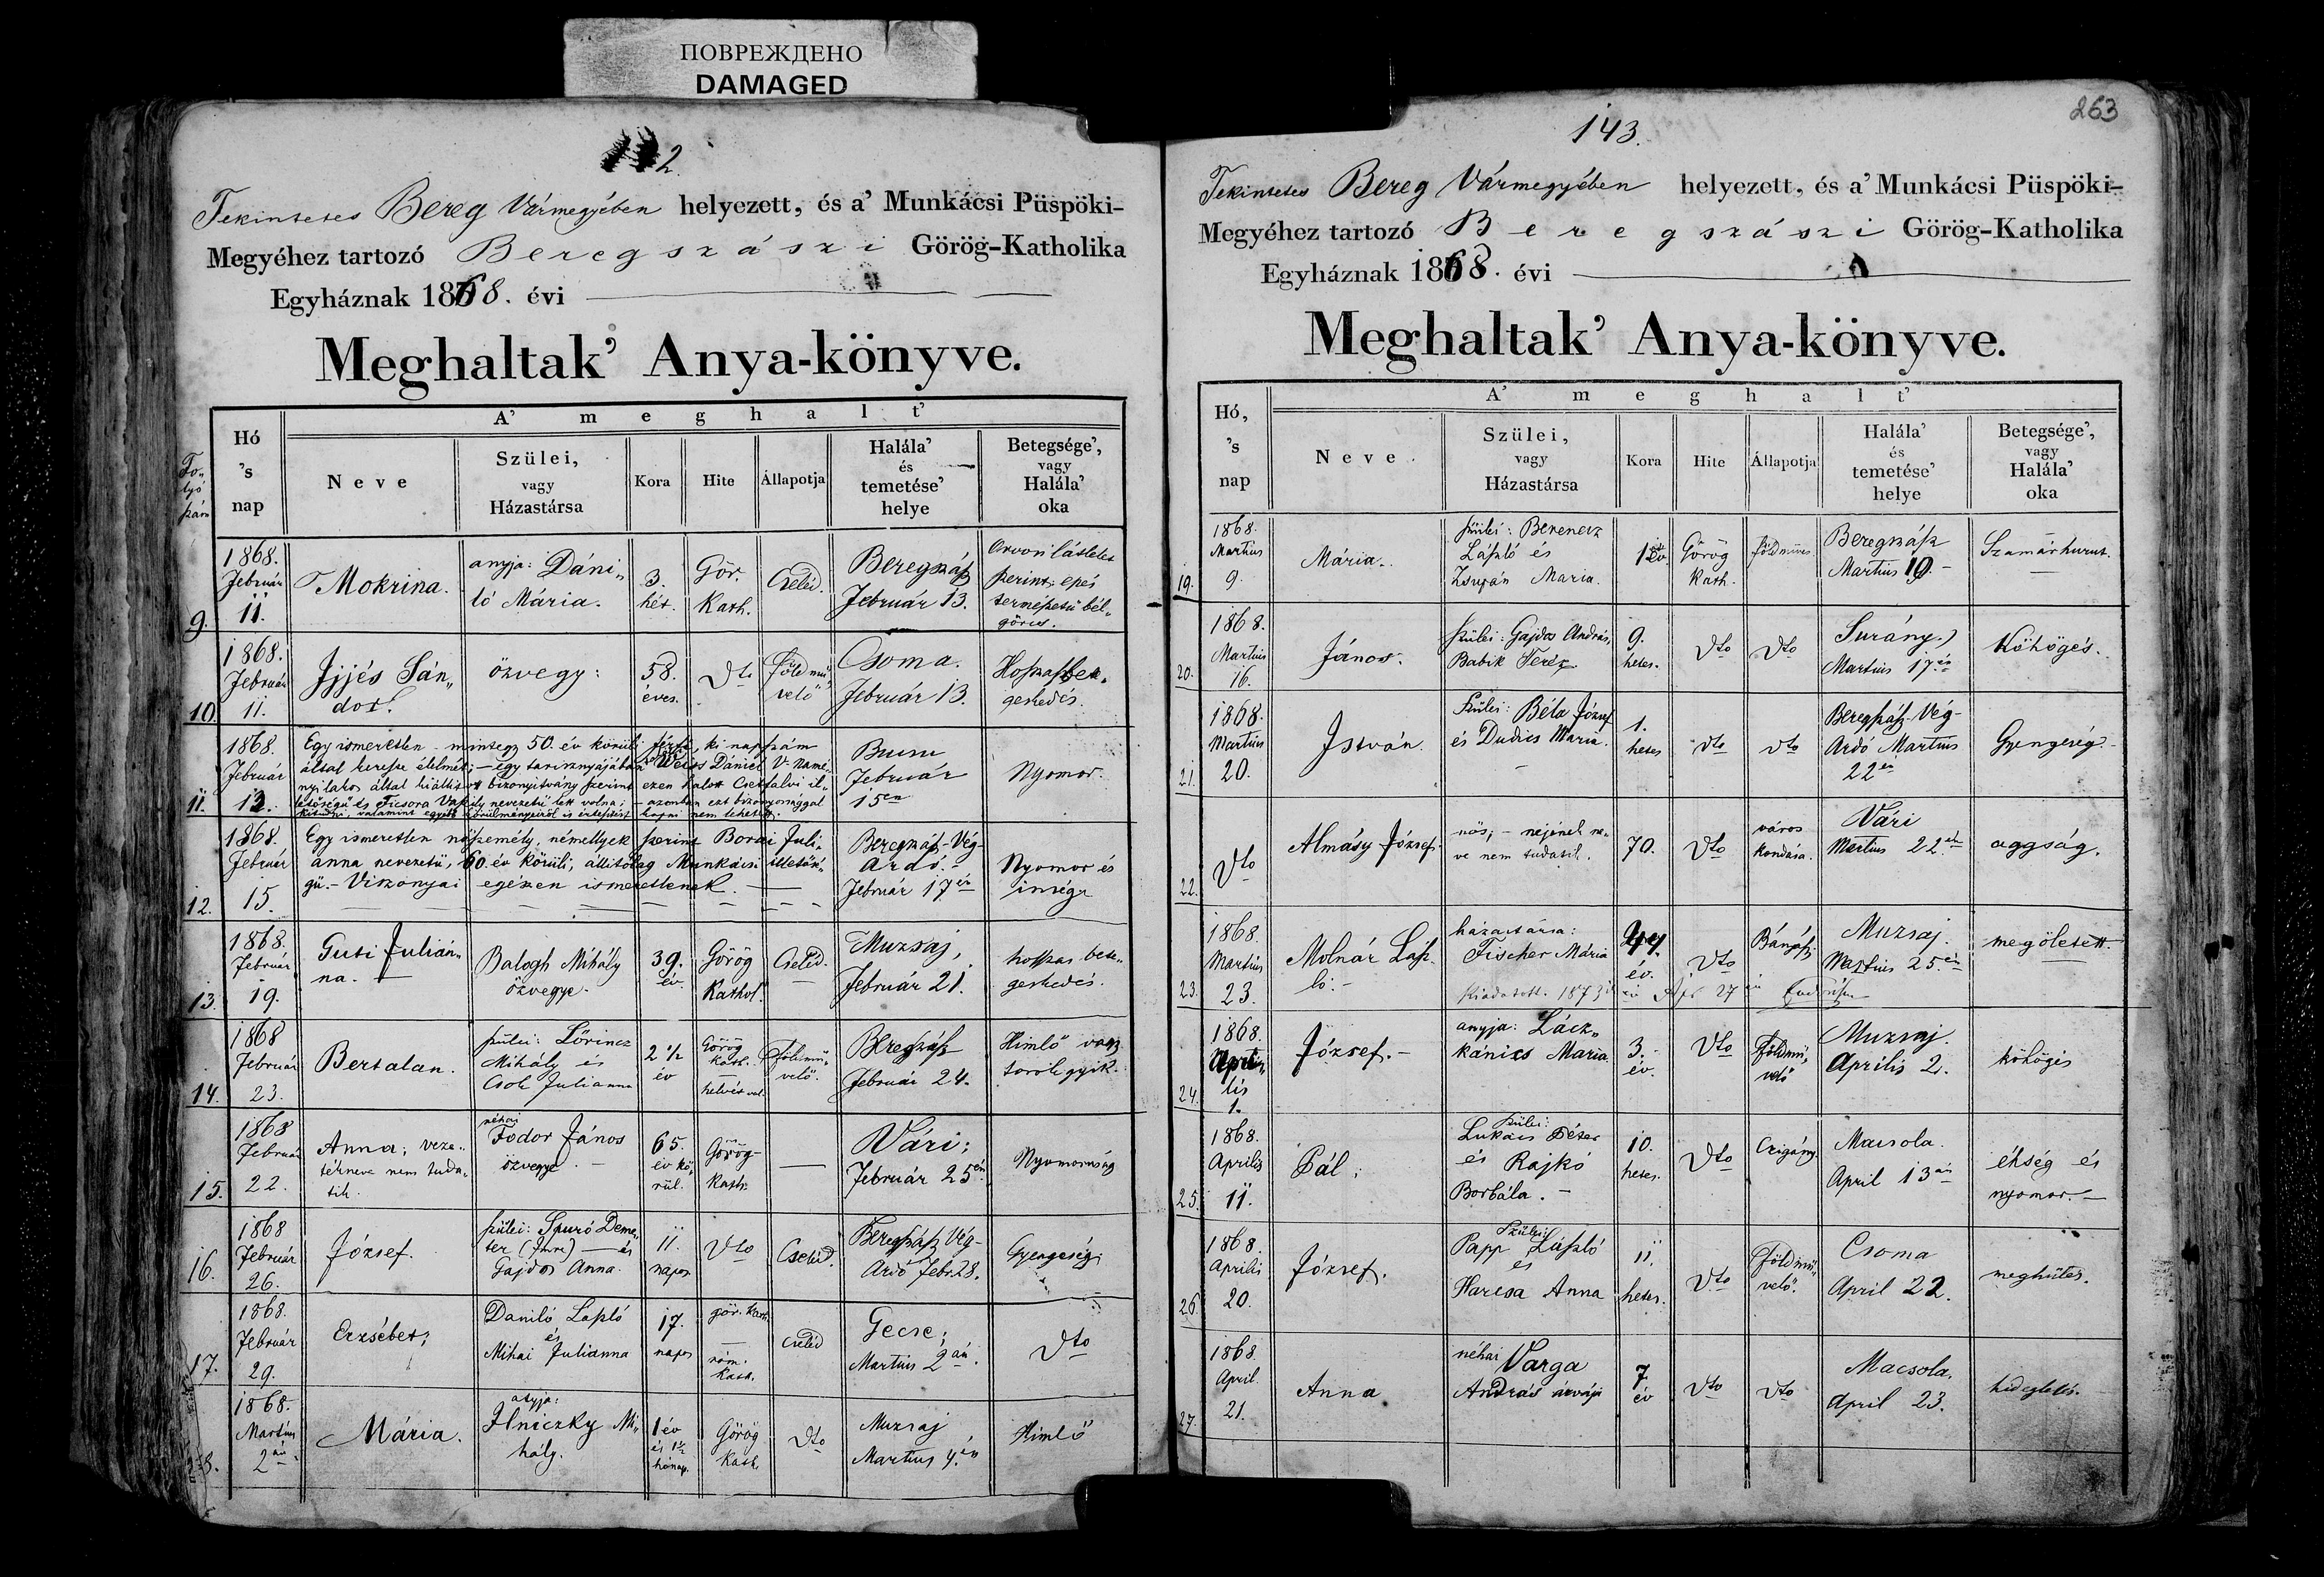 ПОВРЕЖДЕНО
DAMAGED
2.
Tekintetes Bereg Vármegyében helyezett, és a' Munkácsi Püspöki-
Megyéhez tartozó Beregszászi Görög-Katholika
Egyháznak 1868. évi
Meghaltak' Anya-könyve.
Fo-
lyó
szám
Hó
's
nap
A' meghalt'
Neve
Szülei,
vagy
Házastársa
Kora
Hite
Állapotja
Halála'
és
temetése'
helye
Betegsége',
vagy
Halála'
oka
9.
1868.
Február
11.
Mokrina.
anyja: Dáni-
ló Mária.
3.
hét.
Gör.
Kath.
Cseléd.
Beregszász
Február 13.
Orvosi látlelet
szerint: epés
természetü bél-
görcs.
10.
1868.
Február
11.
Ijjés Sán-
dor.
özvegy:
58.
éves.
Dto
Földmü-
velő
Csoma.
Február 13.
Hosszas bete-
geskedés.
11.
1868.
Február
13.
Egy ismeretlen mintegy 50. év körüli férfi, ki napszám
által kereste élelmét; – egy tarisznyájában Weiss Dániel V. Namé-
nyi lakos által kiállított bizonyitvány szerint ezen halott Csetfalvi il-
letőségü és Ficsora Vaszily nevezetü lett volna; – azonban ezt bizonyossággal
kitudni, valamint egyébb körülményeiről is értesítést kapni nem lehetett.
Bucsu
Február
15én
Nyomor.
12.
1868.
Február
15.
Egy ismeretlen nőszemély, némellyek szerint Borsai Juli-
anna nevezetü, 60. év körüli, állitólag Munkácsi illetősé-
gü. – Viszonyai egészen ismeretlenek.
Beregszász-Vég-
Ardó. –
Február 17én
Nyomor és
inség
13.
1868.
Február
19.
Guti Julián-
na.
Balogh Mihály
özvegye.
39.
év.
Görög
Kathol.
Cseléd.
Muzsaj,
Február 21.
hosszas bete-
geskedés.
14.
1868
Február
23.
Bertalan.
szülei: Lőrincz
Mihály és
Csok Julianna
2 ½
év
Görög
kath.
helvét val.
Földmü-
velő.
Beregszász
Február 24.
Himlő vagy
torokgyik.
15.
1868
Február
22.
Anna; veze-
tékneve nem tuda-
tik.
néhai
Fodor János
özvegye. –
65.
év kö-
rül.
Görög-
Kath.
Vári;
Február 25én
Nyomoruság
16.
1868
Február
26.
József.
szülei: Spuró Deme-
ter (Imre) – és
Gajdos Anna.
11.
napos
Dto
Cseléd.
Beregszász Vég-
Ardó Febr. 28.
Gyengeség
17.
1868.
Február
29.
Erzsébet;
Daniló László
és
Mihai Julianna
17.
napos
gör. kath.
róm.
kath.
cseléd
Gecse;
Martius 2án.
Dto
18.
1868.
Martius
2án
Mária.
atyja:
Ilniczky Mi-
hály.
1 év
és 1½
hónap.
Görög
Kath.
Dto
Muzsaj
Martius 4én
Himlő
263
143.
Tekintetes Bereg Vármegyében helyezett, és a' Munkácsi Püspöki-
Megyéhez tartozó Beregszászi Görög-Katholika
Egyháznak 1868. évi
Meghaltak' Anya-könyve.
Hó,
's
nap
A' meghalt'
Neve
Szülei,
vagy
Házastársa
Kora
Hite
Állapotja
Halála'
és
temetése'
helye
Betegsége',
vagy
Halála'
oka
19.
1868.
Martius
9.
Mária.
szülei: Berencsz
László és
Zsupán Maria.
Görög
Kath.
földmives
Beregszász
Martius 10. –
Szamárhurut.
20.
1868.
Martius
16.
János.
szülei: Gajdos András,
Babik Teréz.
9.
hetes.
Dto
Dto
Surány.
Martius 17én
Köhögés.
21.
1868.
Martius
20.
István.
Szülei: Béla József
és Dudics Maria.
1.
hetes
Dto
Dto
Beregszász-Vég-
Ardó Martius
22én
Gyengeség. –
22.
Dto
Almásy József.
nős; – nejének ne-
ve nem tudatik.
70.
Dto
város
kondása.
Vári
Martius 22én
aggság.
23.
1868.
Martius
23.
Molnár Lász-
ló. –
házastársa:
Fischer Mária
Kiadatott. 1873 Apr 27én
44.
év.
Dto
Bányász
Muzsaj.
Martius 25én
megöletett. –
24.
1868.
Apri-
lis
1.
József. –
anyja: Lácz-
kánics Maria.
3.
év.
Dto
Földmü-
velő
Muzsaj.
Április 2.
köhögés
25.
1868.
Aprilis
11.
Pál;
szülei:
Lukács Péter
és Rajkó
Borbála. –
10.
hetes.
Dto
Czigány.
Macsola.
April 13án
éhség és
nyomor. –
26.
1868.
Aprilis
20.
József.
Szülei:
Papp László
és
Harcsa Anna
11.
hetes.
Dto
Földmü-
velő.
Csoma
April 22.
meghütés.
27.
1868.
April.
21.
Anna
néhai Varga
András árvája
7
év
Dto
Dto
Macsola.
April 23.
hideglelés.